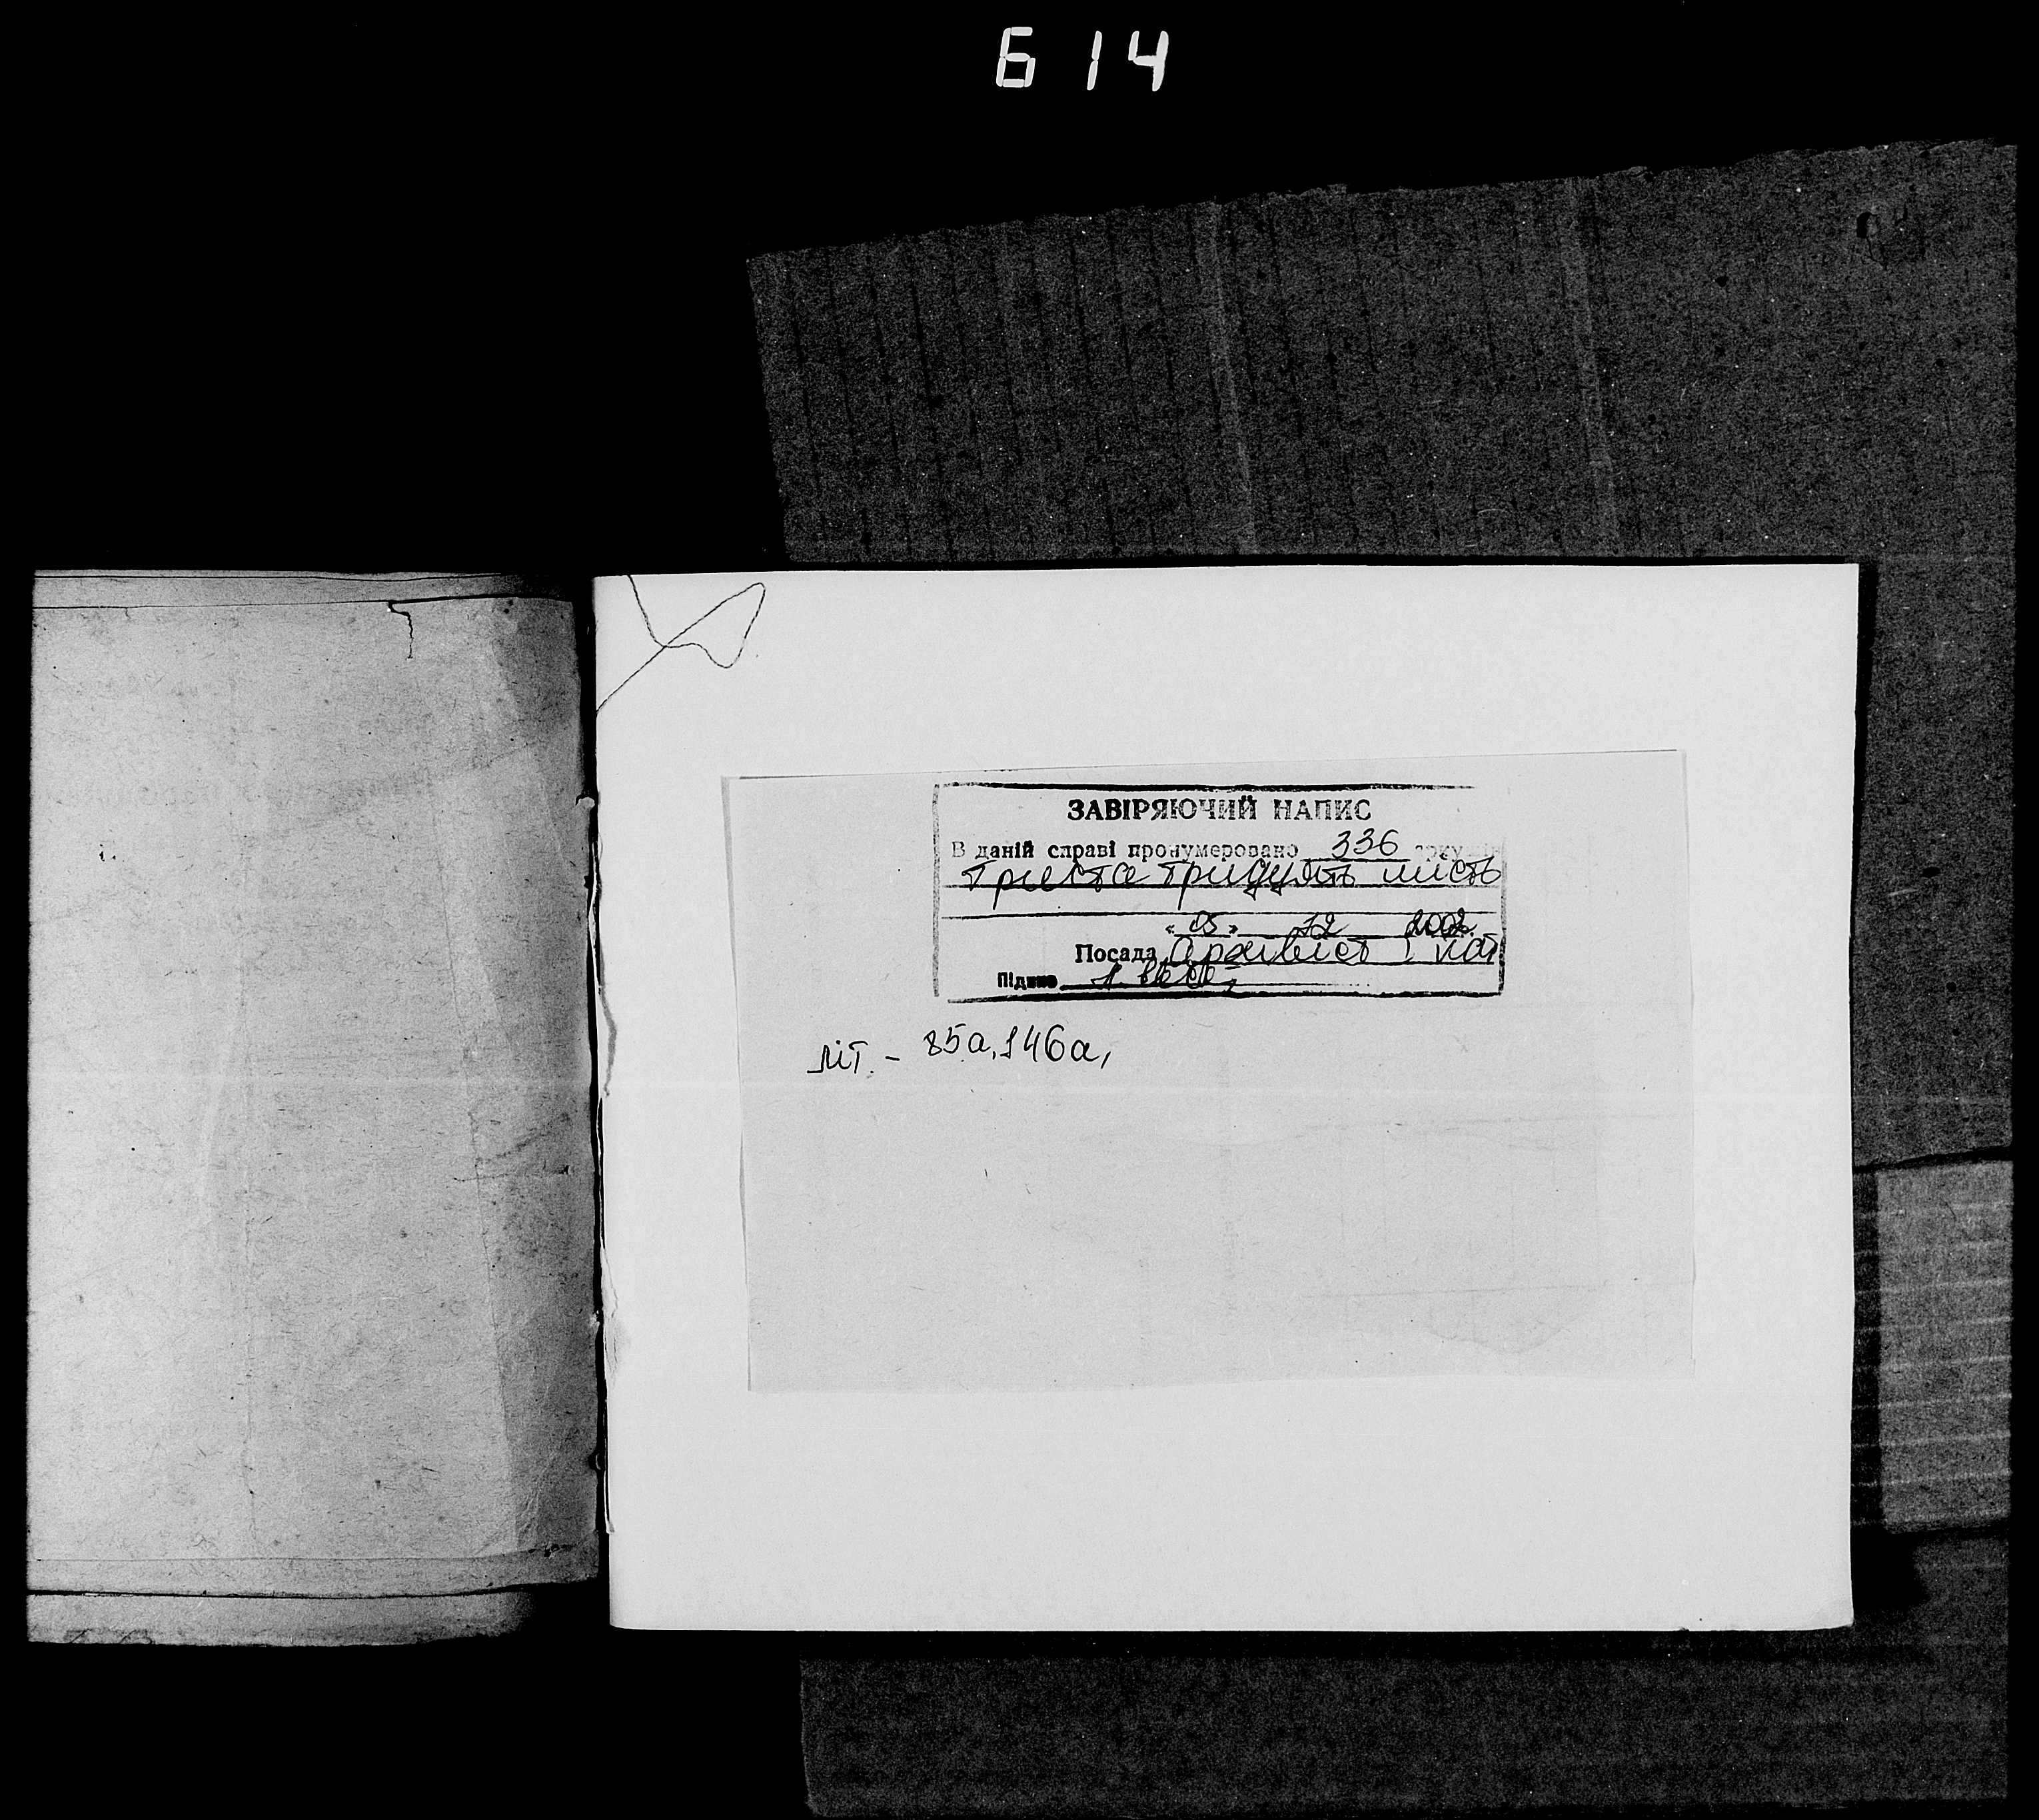 614
ЗАВІРЯЮЧИЙ НАПИС
В даній справі пронумеровано 336 аркушів
триста тридцять шість
« 05 » 12 2002
Посада архівіст І кат
Підпис
літ. - 85а, 146а,